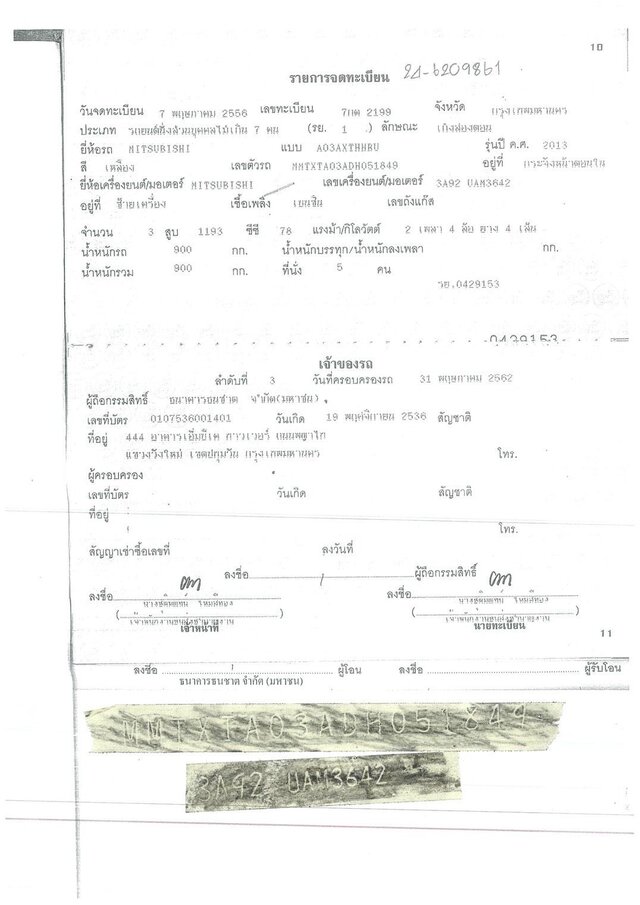 10
รายการจดทะเบียน 24-6209861
วันจดทะเบียน 7 พฤษภาคม 2556 เลขทะเบียน 7กต 2199 จังหวัด กรุงเทพมหานคร
ประเภท รถยนต์นั่งส่วนบุคคลไม่เกิน 7 คน (รย. 1 ) ลักษณะ เก๋งสองตอน
ยี่ห้อรถ MITSUBISHI แบบ A03AXTHHRU รุ่นปี ค.ศ. 2013
สี เหลือง เลขตัวรถ MMTXTA03ADH051849 อยู่ที่ กระจังหน้าตอนใน
ยี่ห้อเครื่องยนต์/มอเตอร์ MITSUBISHI เลขเครื่องยนต์/มอเตอร์ 3A92 UAM3642
อยู่ที่ ซ้ายเครื่อง เชื้อเพลิง เบนซิน เลขถังแก๊ส
จำนวน 3 สูบ 1193 ซีซี 78 แรงม้า/กิโลวัตต์ 2 เพลา 4 ล้อ ยาง 4 เส้น
น้ำหนักรถ 900 กก. น้ำหนักบรรทุก/น้ำหนักลงเพลา กก.
น้ำหนักรวม 900 กก. ที่นั่ง 5 คน
รย.0429153
0429153
เจ้าของรถ
ลำดับที่ 3 วันที่ครอบครองรถ 31 พฤษภาคม 2562
ผู้ถือกรรมสิทธิ์ ธนาคารธนชาต จำกัด(มหาชน)
เลขที่บัตร 0107536001401 วันเกิด 19 พฤศจิกายน 2536 สัญชาติ
ที่อยู่ 444 อาคารเอ็มบีเค ทาวเวอร์ ถนนพญาไท
แขวงวังใหม่ เขตปทุมวัน กรุงเทพมหานคร โทร.
ผู้ครอบครอง
เลขที่บัตร วันเกิด สัญชาติ
ที่อยู่
โทร.
สัญญาเช่าซื้อเลขที่ ลงวันที่
ลงชื่อ ผู้ถือกรรมสิทธิ์
ลงชื่อ ลงชื่อ
เจ้าหน้าที่ นายทะเบียน
11
ลงชื่อ ผู้โอน ลงชื่อ ผู้รับโอน
ธนาคารธนชาต จำกัด (มหาชน)
MMTXTA03ADH051849
3A92 UAM3642